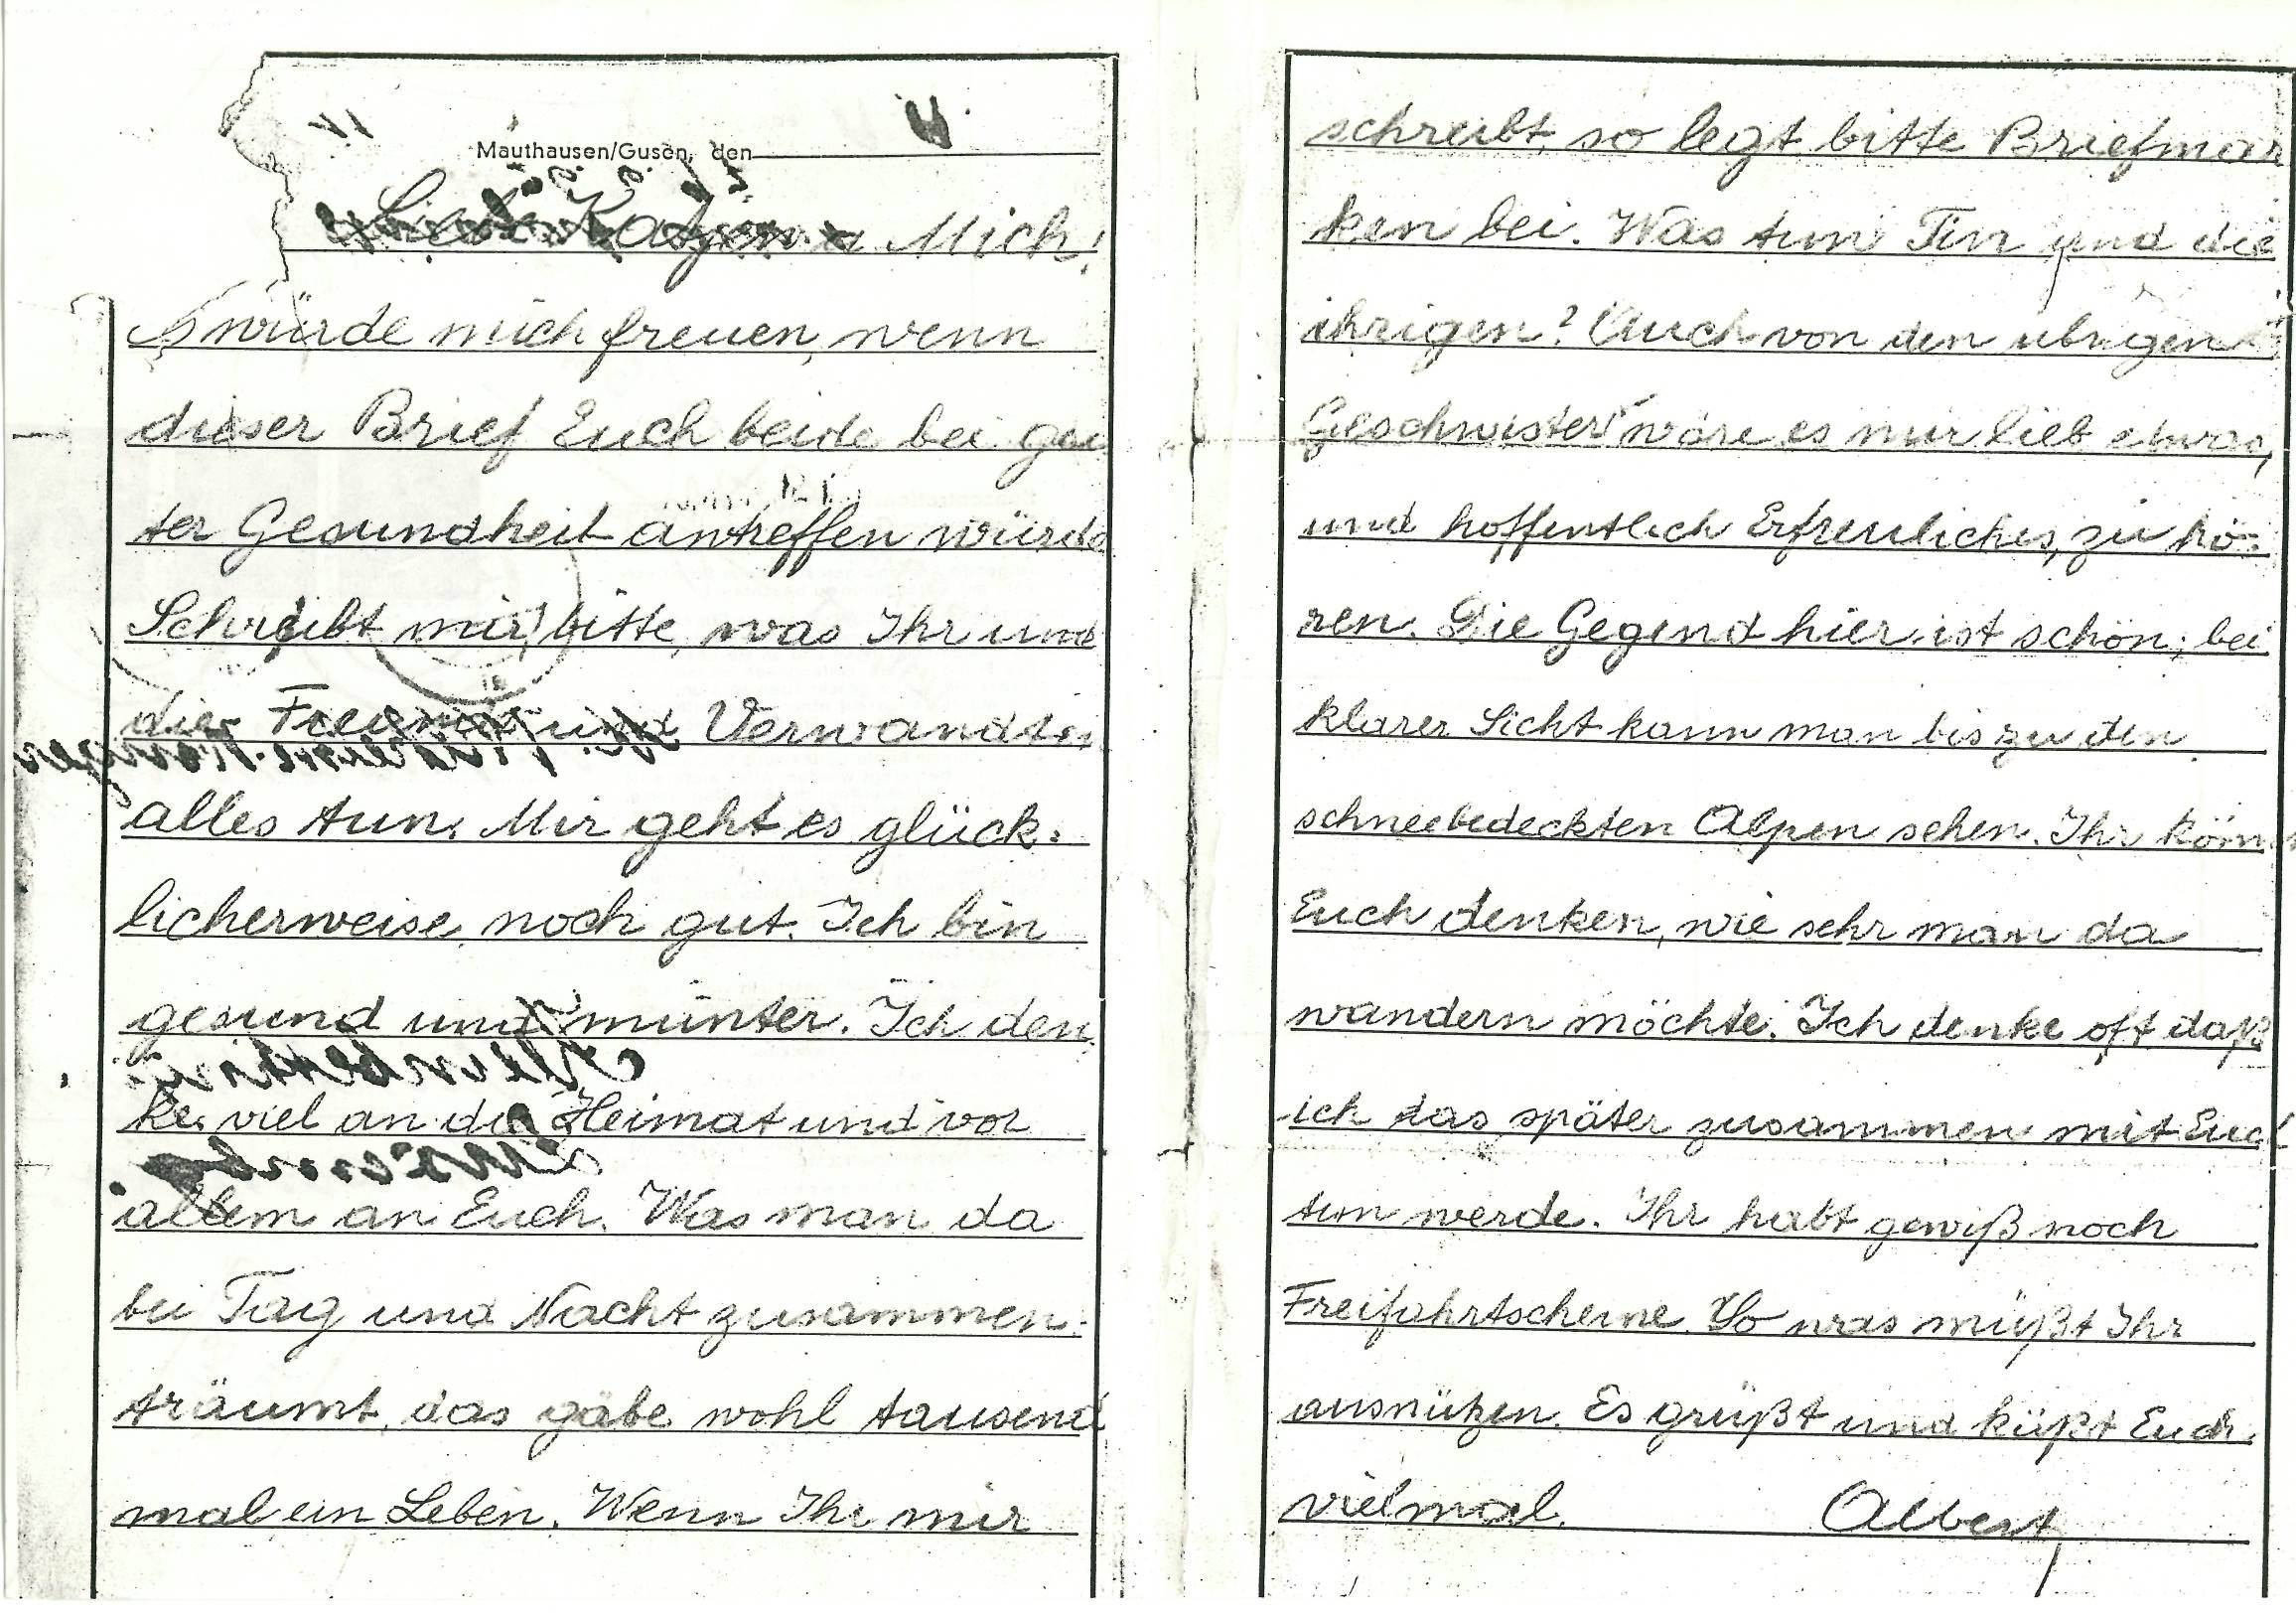 Mauthausen/Gusen, den
Liebe Mich!
Es würde mich freuen, wenn
dieser Brief Euch beide bei gu
ter Gesundheit antreffen würde
Schreibt mir, bitte, was Ihr und
die Freunde und Verwandten
alles tun. Mir geht es glück-
licherweise noch gut. Ich bin
gesund und munter. Ich den
ke viel an die Heimat und vor
allem an Euch. Was man da
bei Tag und Nacht zusammen-
träumt, das gäbe wohl tausend
mal ein Leben. Wenn Ihr mir
schreibt, so legt bitte Briefmar
ken bei. Was tun Tin und die
ihrigen? Auch von den übrigen
Geschwister wäre es mir lieb etwas,
und hoffentlich Erfreuliches, zu hö-
ren. Die Gegend hier ist schön; bei
klarer Sicht kann man bis zu den
schneebedeckten Alpen sehen. Ihr könnt
Euch denken, wie sehr man da
wandern möchte. Ich denke oft daß
ich das später zusammen mit Euch
tun werde. Ihr habt gewiß noch
Freifahrtscheine. So was müßt Ihr
ausnützen. Es grüßt und küßt Euch
vielmal. Albert